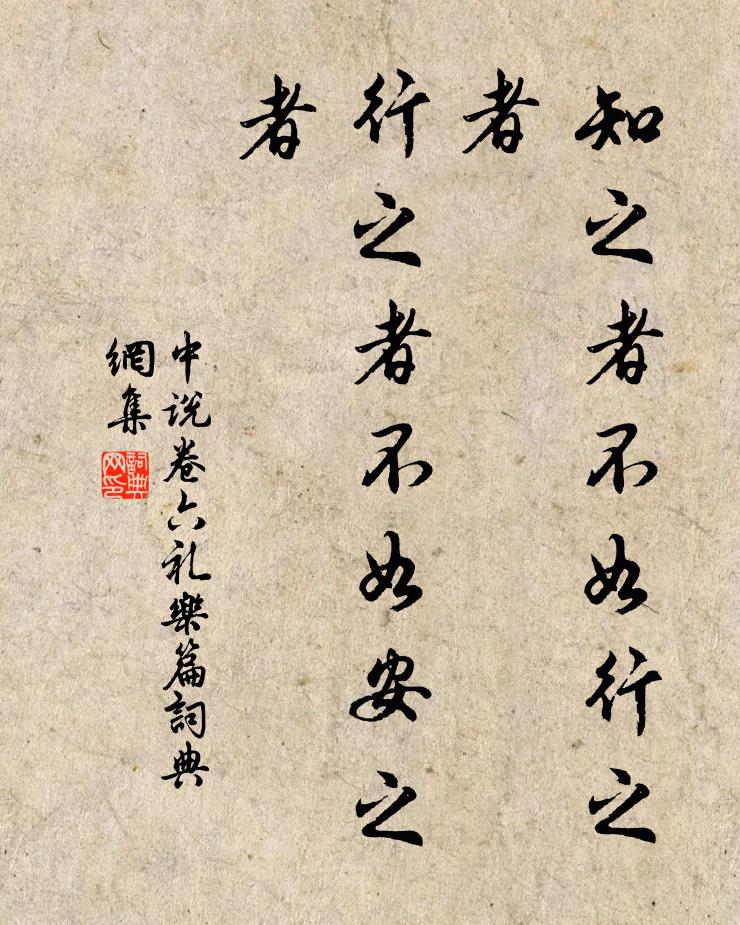 知之者不如行之
者
行之者不如安之
者
中说卷六礼樂篇詞典
網集
詞典
网印